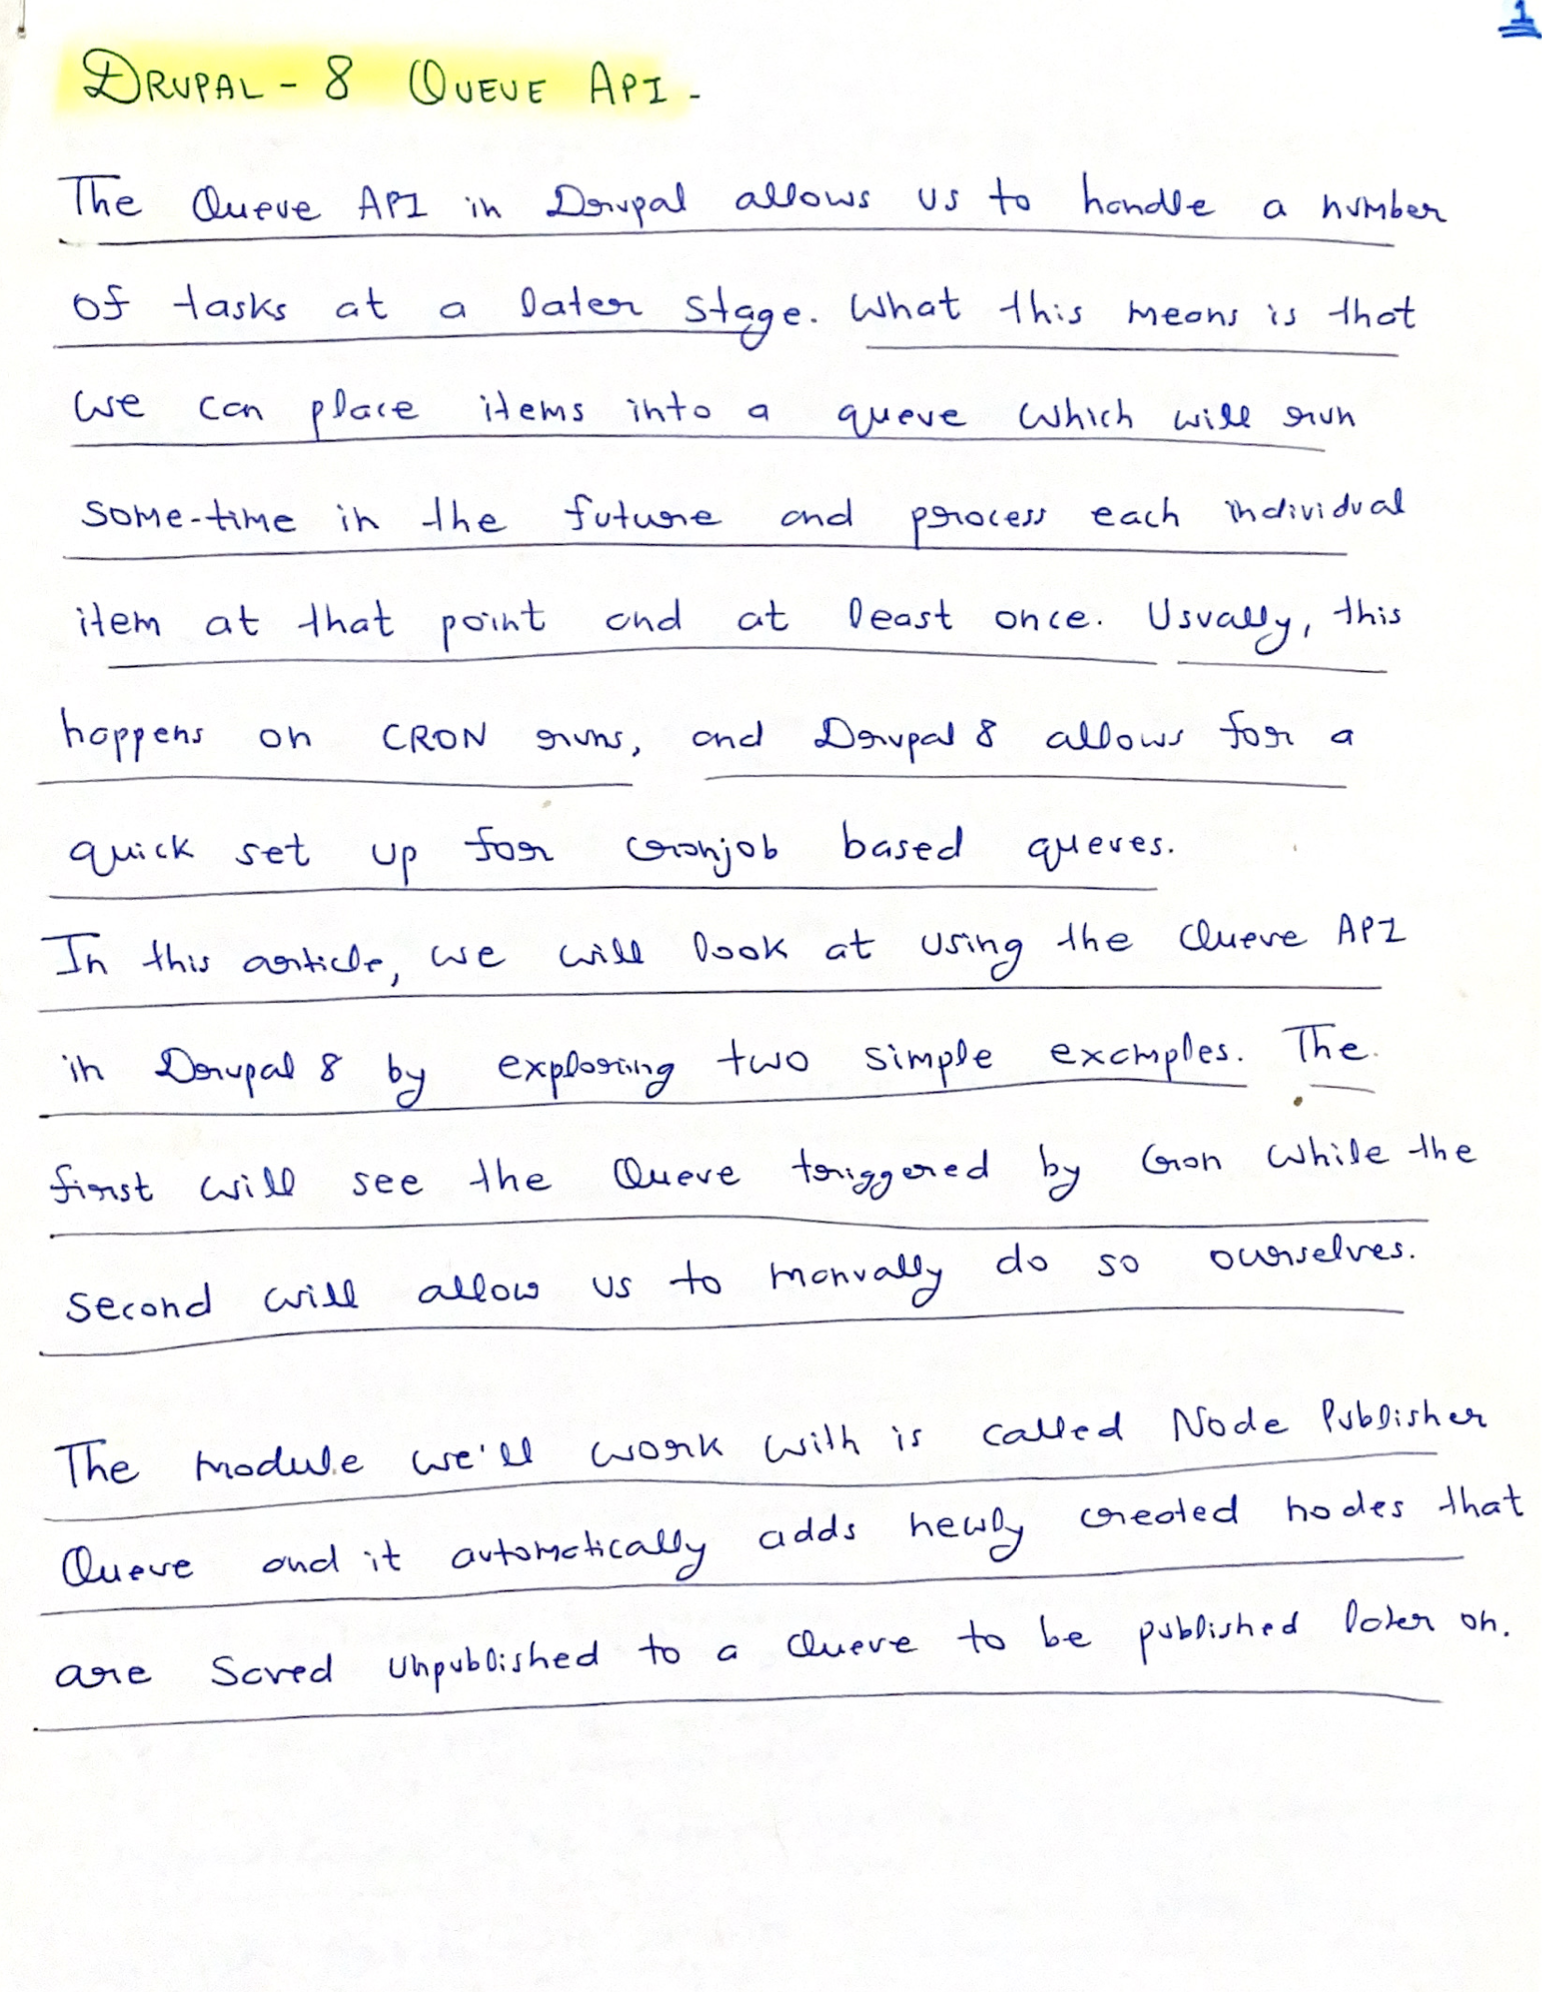 1
DRUPAL - 8 QUEUE API -
The Queue API in Drupal allows us to handle a number
of tasks at a later stage. What this means is that
we can place items into a queue which will run
some-time in the future and process each individual
item at that point and at least once. Usually, this
happens on CRON runs, and Drupal 8 allows for a
quick set up for cronjob based queues.
In this article, we will look at using the Queue API
in Drupal 8 by exploring two simple examples. The
first will see the Queue triggered by Cron while the
second will allow us to manually do so ourselves.
The module we'll work with is called Node Publisher
Queue and it automatically adds newly created nodes that
are saved unpublished to a Queue to be published later on.